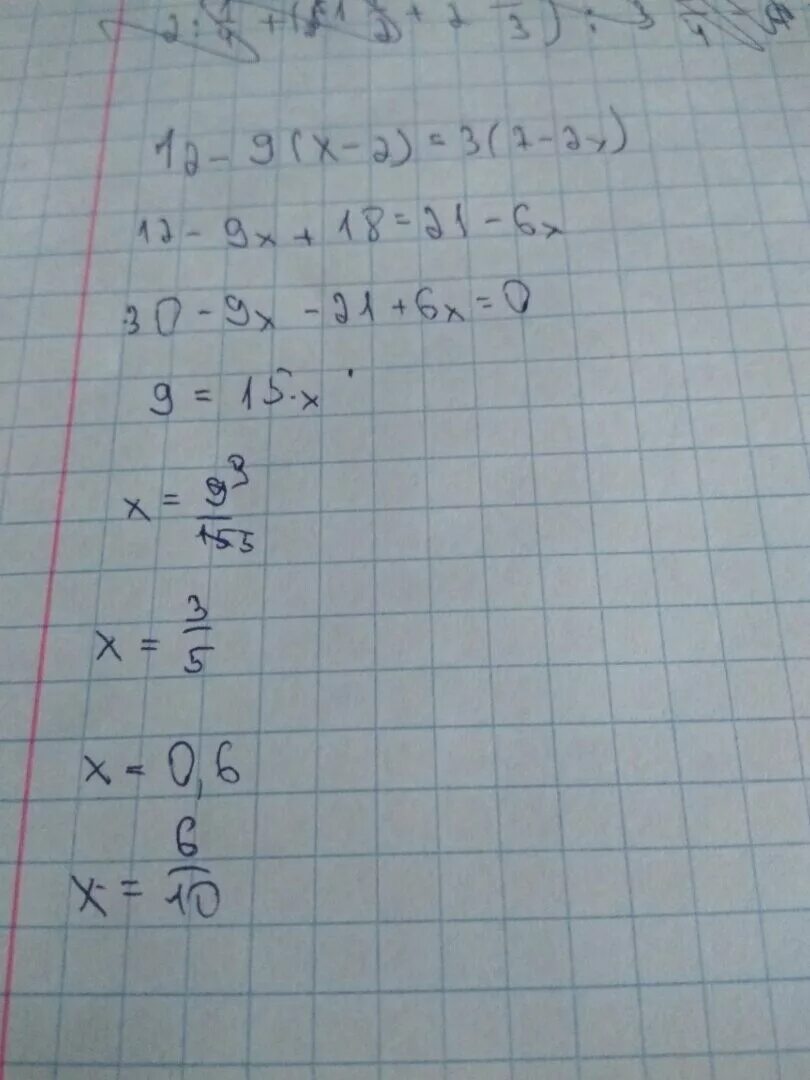 12 - 9(x-2) = 3(7-2x)
12 - 9x + 18 = 21 - 6x
30 - 9x - 21 + 6x = 0
9 = 15·x
x = 9 3 / 15 5
x = 3/5
x = 0,6
x = 6/10